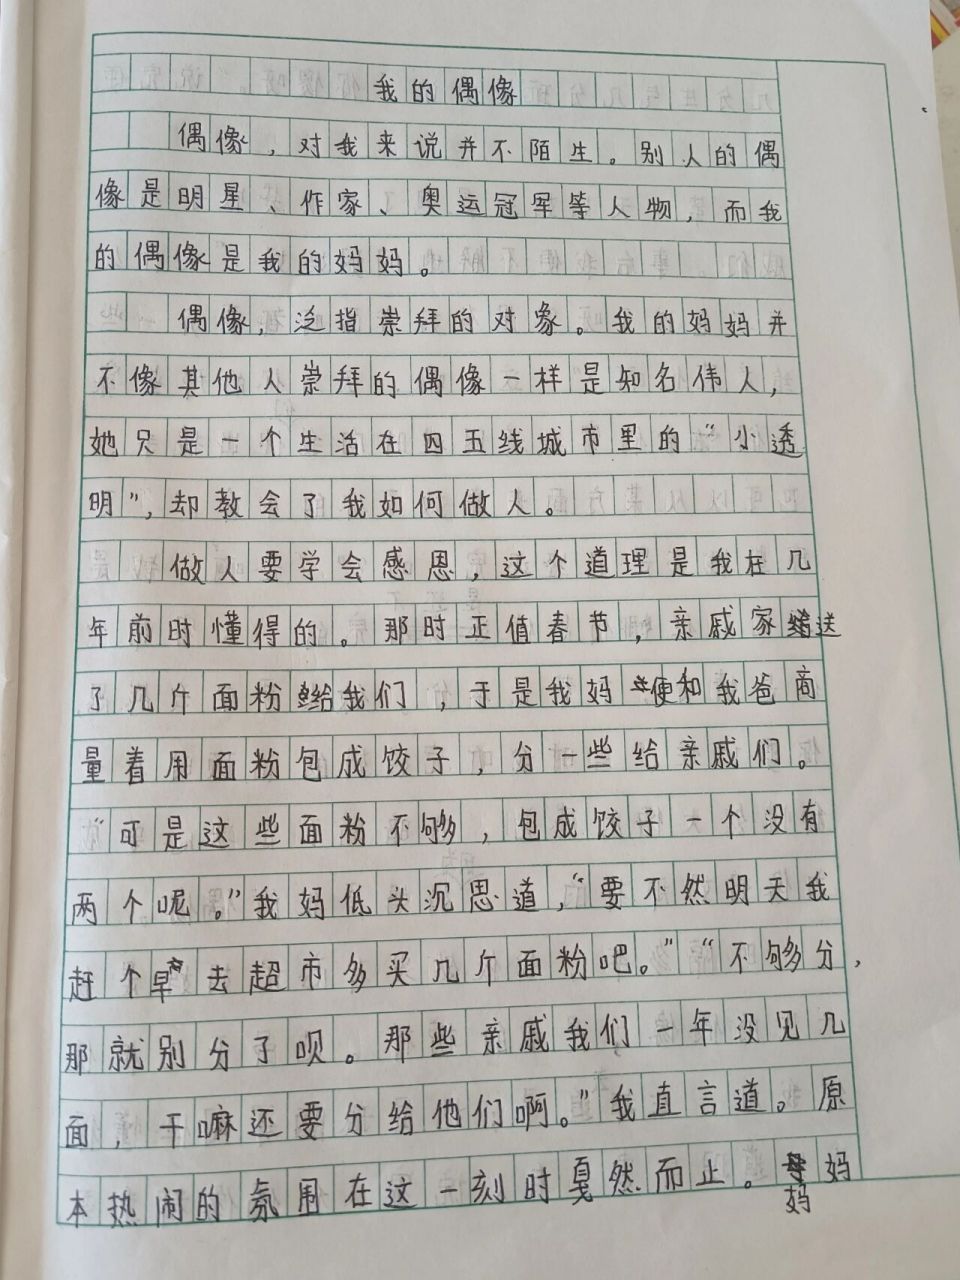 我的偶像
偶像，对我来说并不陌生。别人的偶
像是明星、作家、奥运冠军等人物，而我
的偶像是我的妈妈。
偶像，泛指崇拜的对象。我的妈妈并
不像其他人崇拜的偶像一样是知名伟人，
她只是一个生活在四五线城市里的“小透
明”，却教会了我如何做人。
做人要学会感恩，这个道理是我在几
年前时懂得的。那时正值春节，亲戚家送
了几斤面粉给我们，于是我妈便和我爸商
量着用面粉包成饺子，分一些给亲戚们。
“可是这些面粉不够，包成饺子一个没有
两个呢。”我妈低头沉思道，“要不然明天我
赶个早去超市多买几斤面粉吧。”“不够分，
那就别分了呗。那些亲戚我们一年没见几
面，干嘛还要分给他们啊。”我直言道。原
本热闹的氛围在这一刻时戛然而止。妈妈